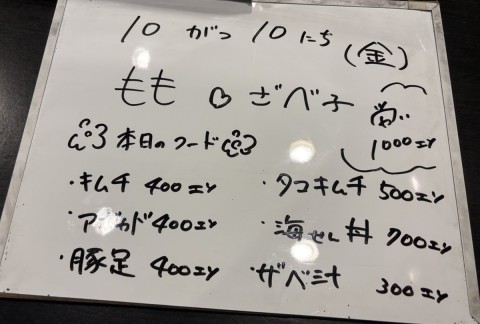 10がつ10にち(金)
もも♡ざべ子
1000エン
本日のフード
・キムチ 400エン
・タコキムチ 500エン
・アボカド 400エン
・海せん丼 700エン
・豚足 400エン
・ザベ汁 300エン